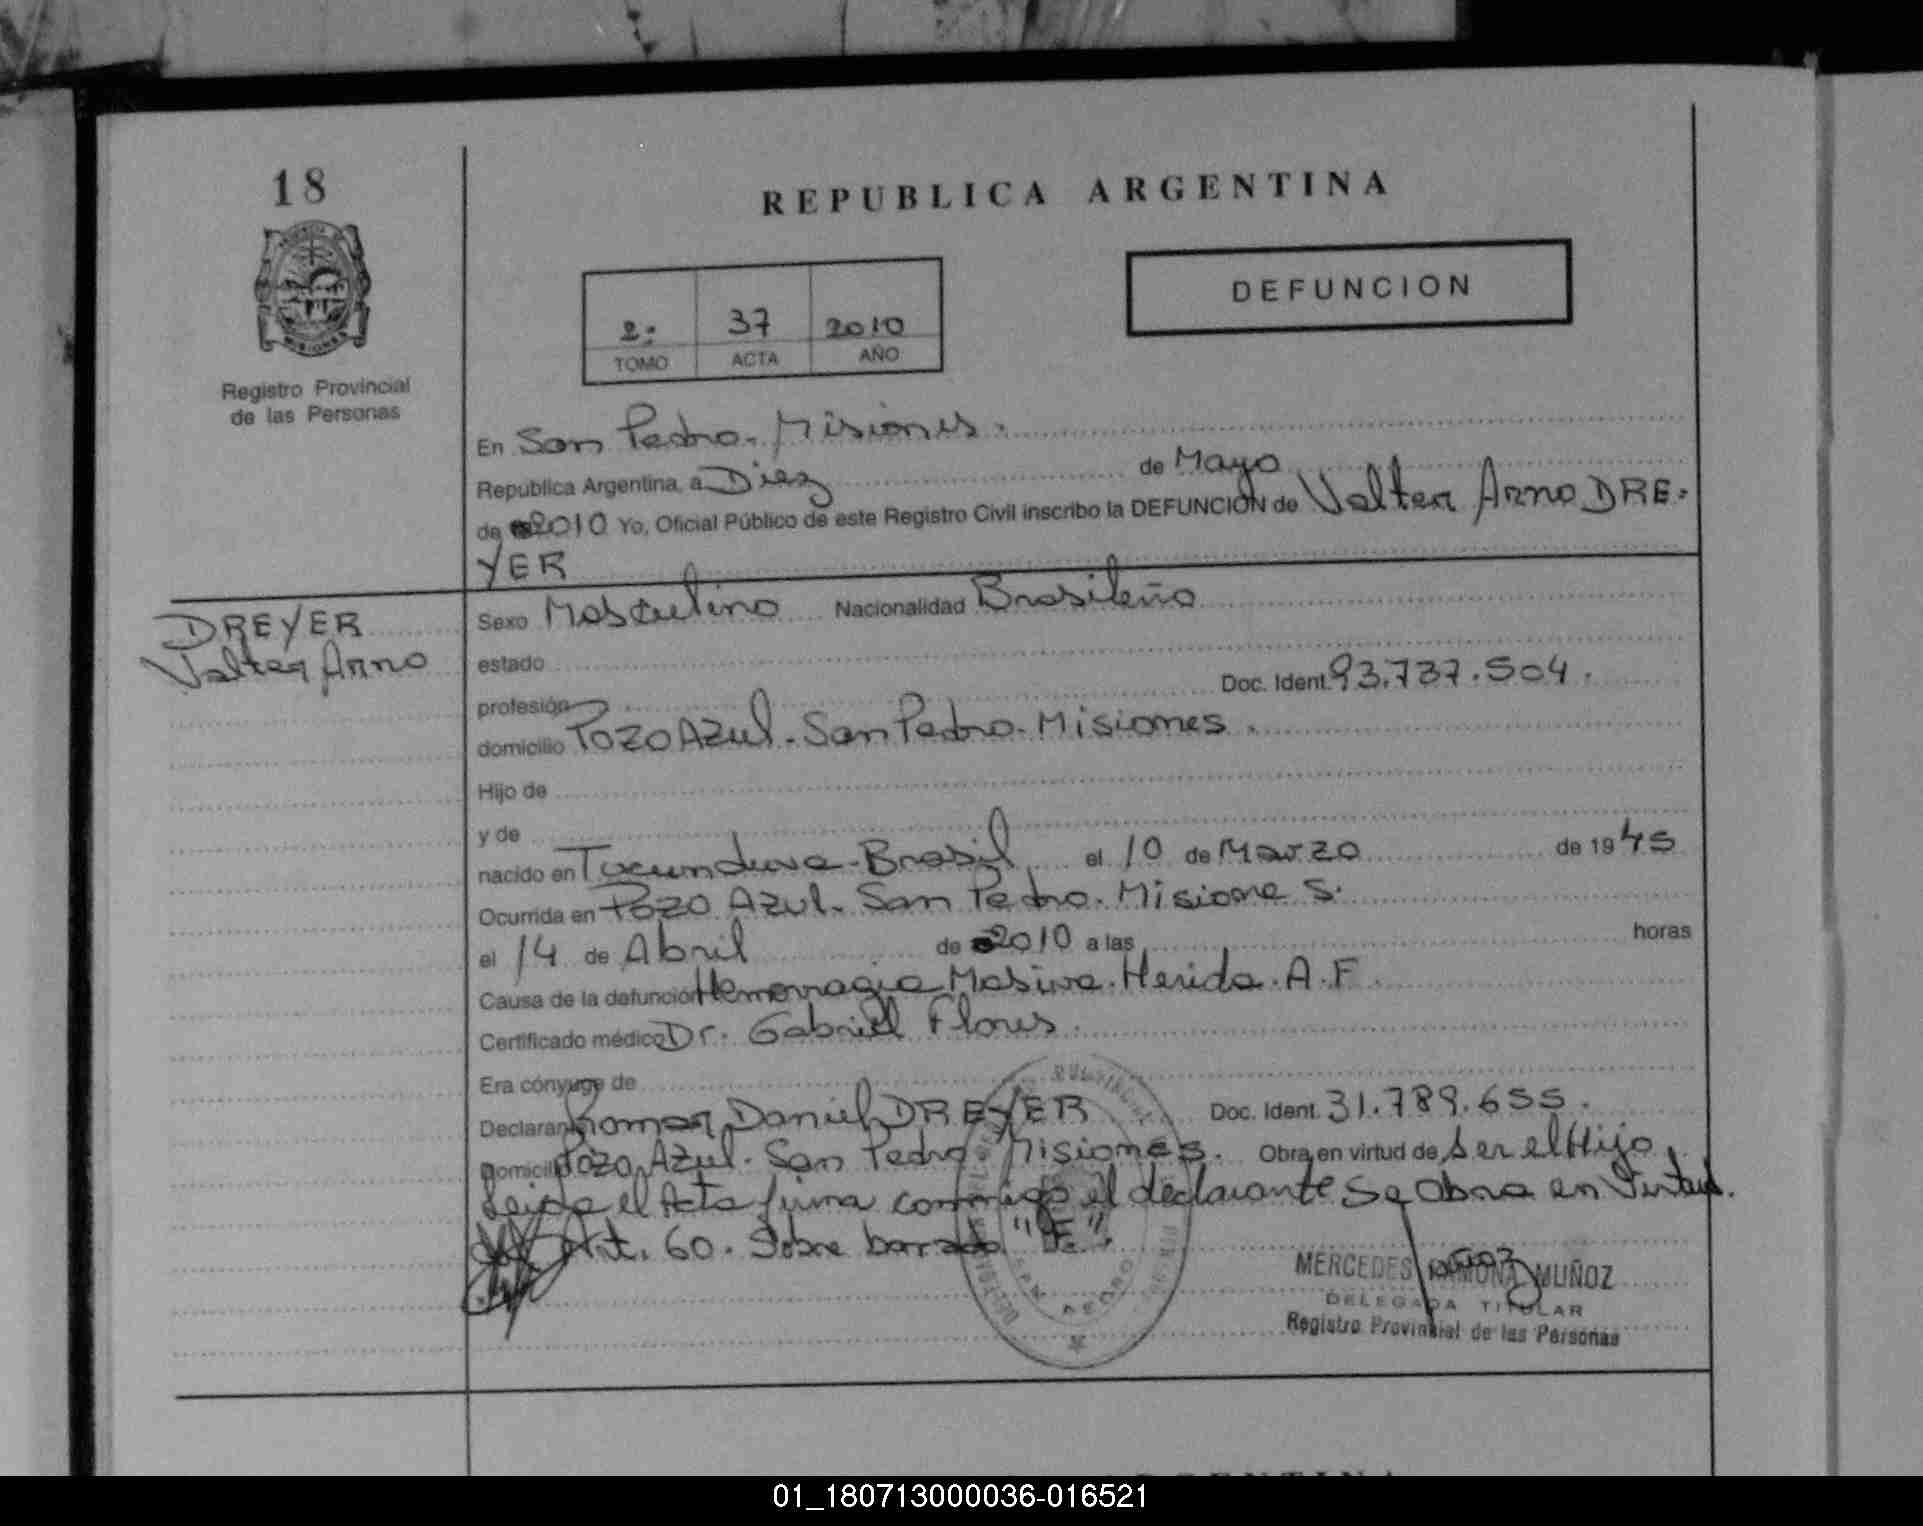 18
REPUBLICA ARGENTINA
DEFUNCION
2º 37 2010
TOMO ACTA AÑO
MISIONES
Registro Provincial
de las Personas
En San Pedro. Misiones.
República Argentina, a Diez de Mayo
de 2010 Yo, Oficial Público de este Registro Civil inscribo la DEFUNCION de Valter Arno DRE-
YER
DREYER
Valter Arno
Sexo Masculino Nacionalidad Brasileño
estado
profesión Doc. Ident. 93.737.504.
domicilio Pozo Azul. San Pedro. Misiones.
Hijo de
y de
nacido en Tucunduva-Brasil el 10 de Marzo de 1945
Ocurrida en Pozo Azul. San Pedro. Misiones.
el 14 de Abril de 2010 a las horas
Causa de la defunción Hemorragia Masiva. Herida. A.F.
Certificado médico Dr. Gabriel Flores.
Era cónyuge de
Declarante Daniel DREYER Doc. Ident. 31.789.655.
Domicilio Pozo Azul. San Pedro Misiones. Obra en virtud de ser el Hijo
Leida el Acta firma conmigo el declarante Se Obra en Virtud.
Art. 60. Sobre borrado
SAN PEDRO
MERCEDES RAMONA MUÑOZ
DELEGADA TITULAR
Registro Provincial de las Personas
01_180713000036-016521